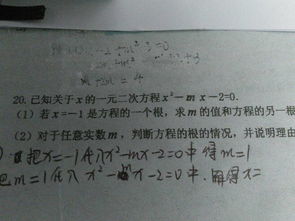 m = 4
20. 已知关于 x 的一元二次方程 x²- m x -2=0.
(1) 若 x=-1 是方程的一个根，求 m 的值和方程的另一根
(2) 对于任意实数 m，判断方程的根的情况，并说明理由
把x=-1代入x²-mx-2=0中得m=1
把m=1代入 x²- x-2=0中.解得x=